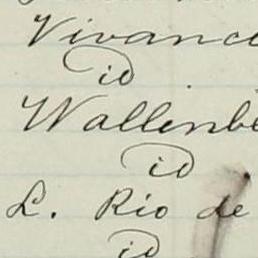 Vivanco
id
Wallenbe
id
L. Rio de
id